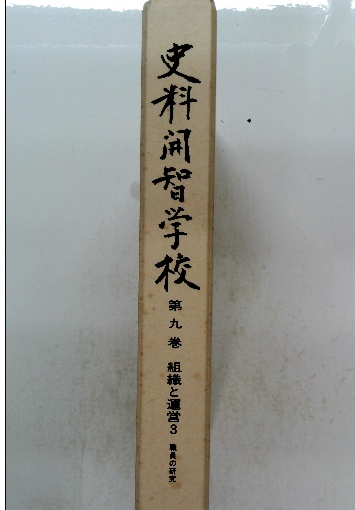 史料開智学校
第九巻 組織と運営3 職員の研究